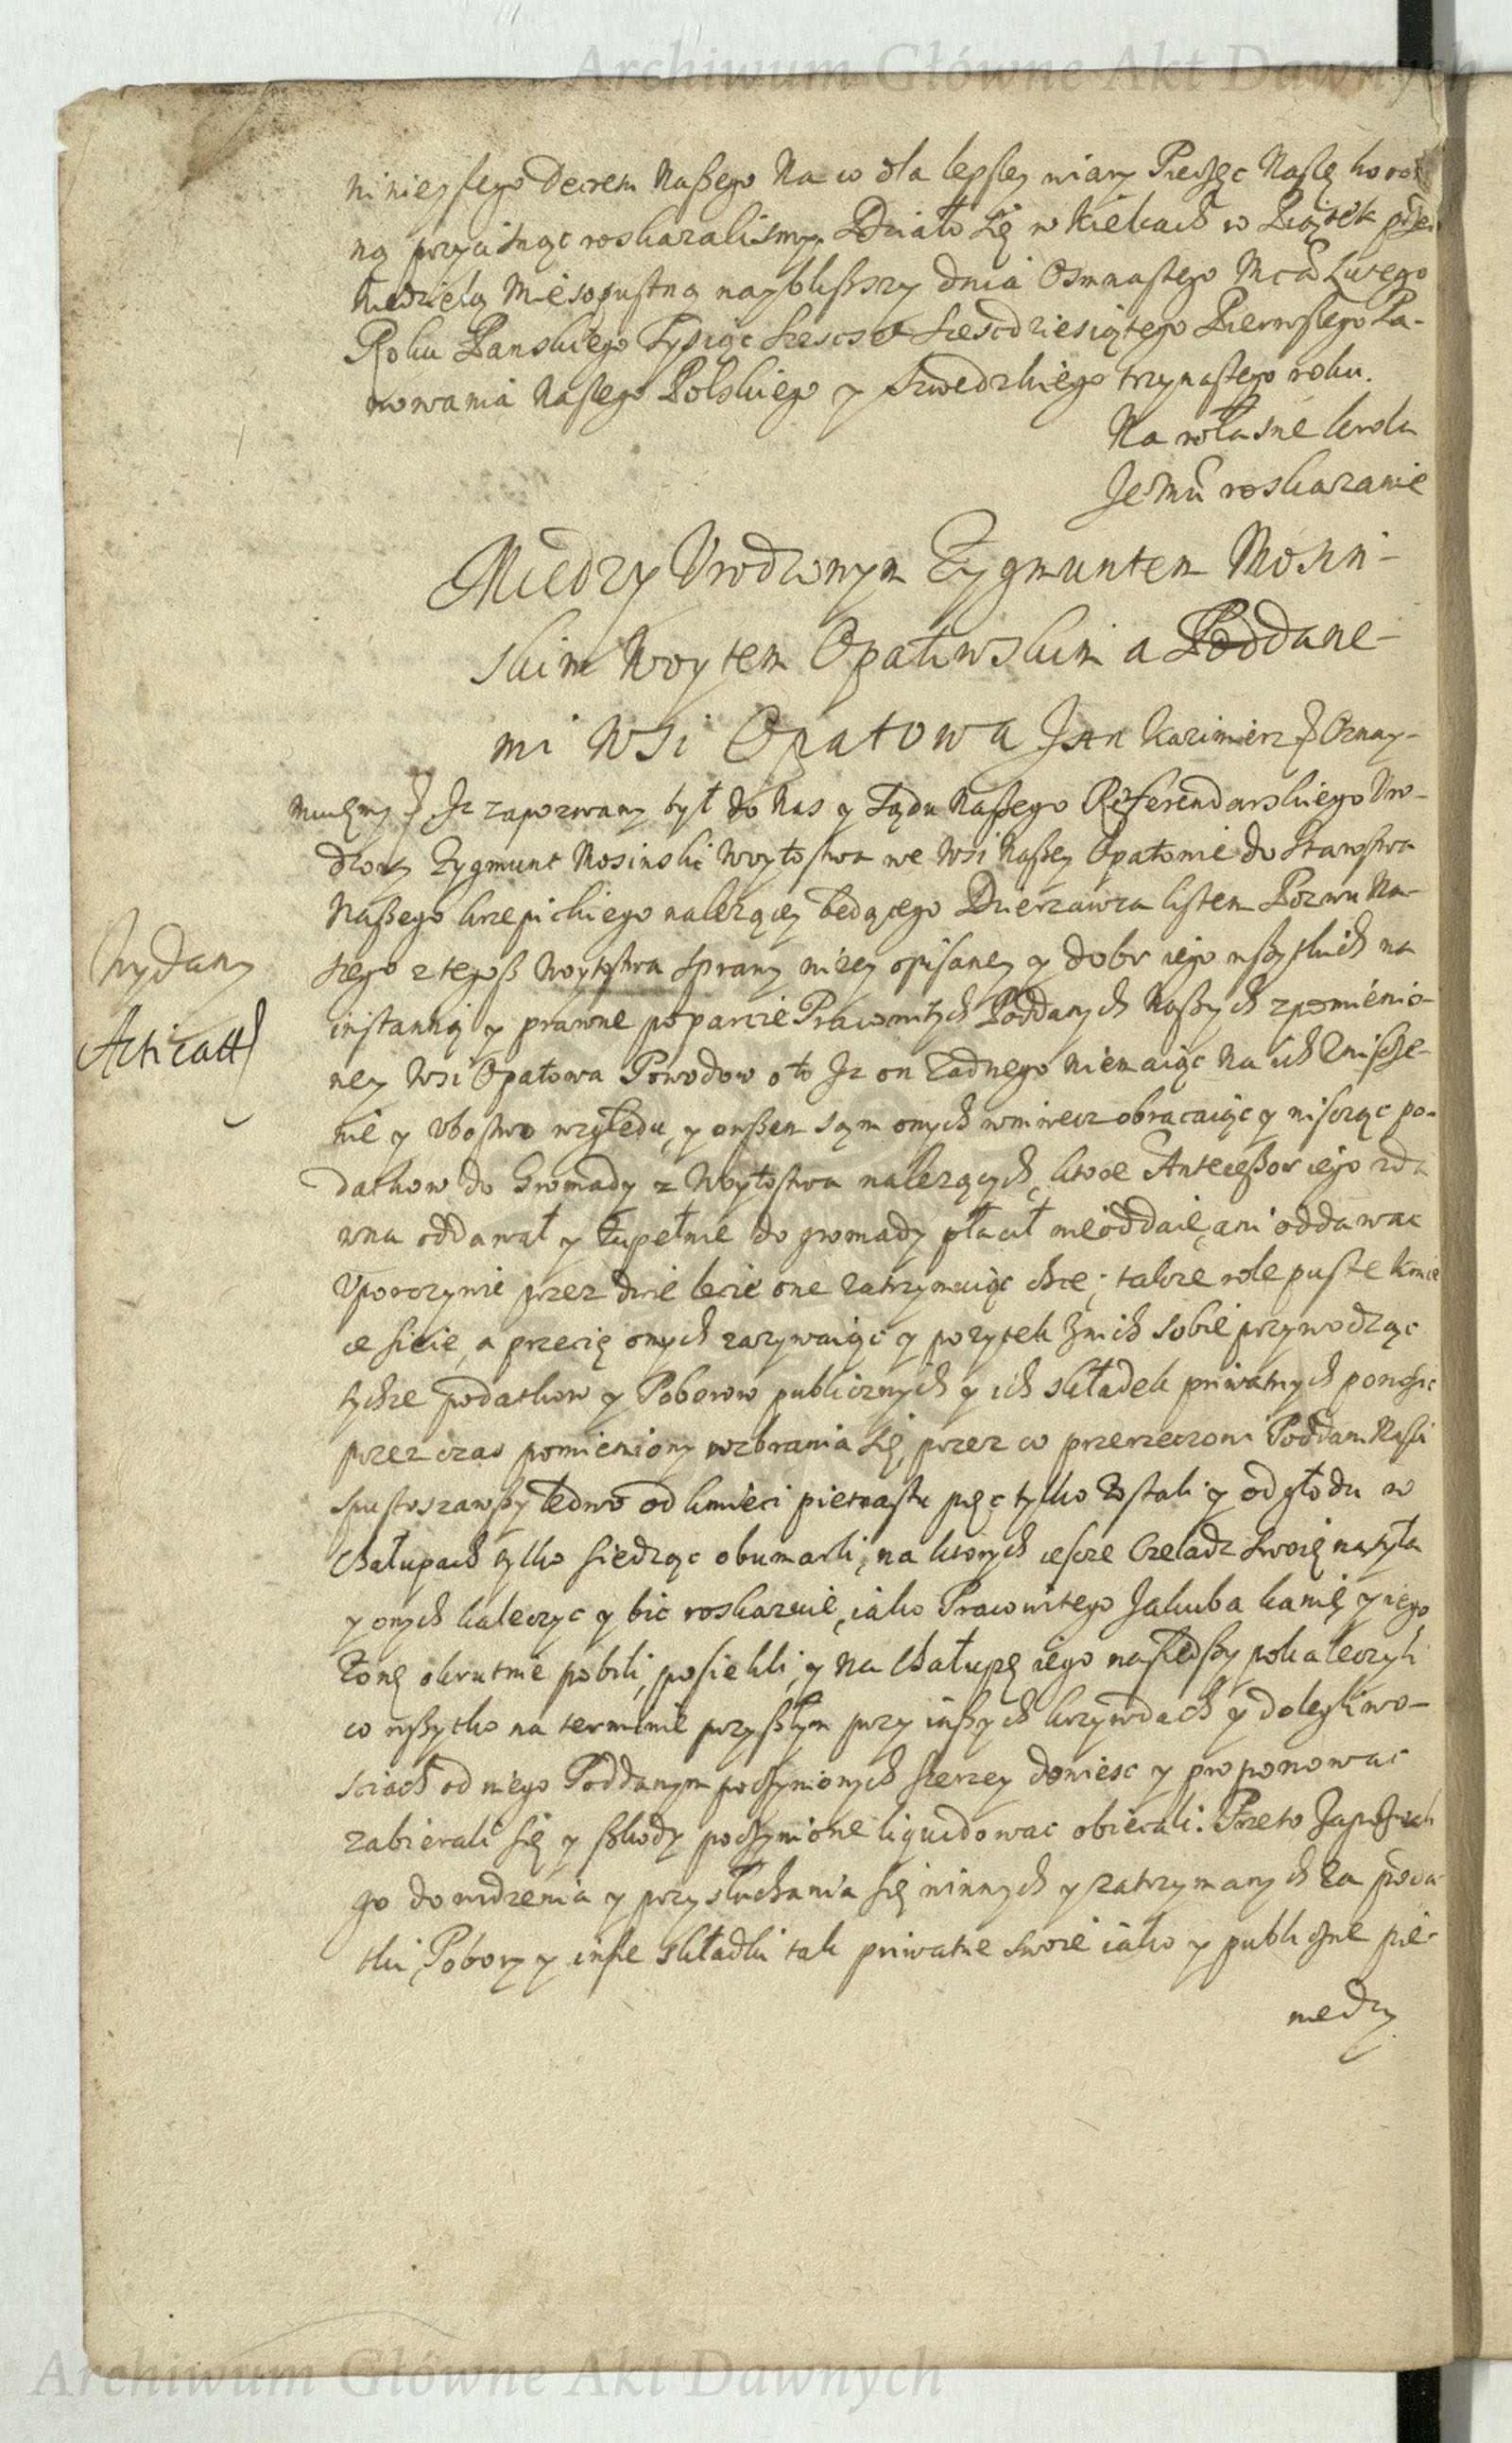 Archiwum Główne Akt Dawnych
ninieyszego Decretu Naszego Na co dla lepszey wiary Pieczęc Naszę koron
ną przycisnąc roskazalismy. Działo się w Kielcach w Piątek przed
Niedzielą Mięsopustną nayblisszy dnia Osmnastego Mca Lutego
Roku Panskiego Tysiąc szescset szescdziesiątego Pierwszego Pa-
nowania Naszego Polskiego y szwedzkiego trzynastego roku.
Na własne krola
Je Mci roskazanie
Miedzy Vrodzonym Zygmuntem Mosin-
skim Woytem Opatowskim a Poddane-
mi Wsi Opatowa Jan Kazimierz Oznay-
Wydany
Acticatt
muiemy Jz zapozwany był do Nas y Sądu Naszego Referendarskiego Vro-
dzony Zygmunt Mosinski Woytostwa we Wsi Naszey Opatowie do Starostwa
Naszego krzepickiego nalezącey będącego Dzierzawca listem Pozwu Na-
szego z tegosz Woytostwa sprawy nizey opisaney y dobr iego wszytkich na
instantią y prawne poparcie Pracowitych Poddanych Naszych zpomienio-
ney Wsi Opatowa Powodow o to Jz on zadnego niemaiąc na ich znisze-
nie y vbostwo względu, y owszem sam onych wniwecz obracaiąc y niscząc po-
datkow do Gromady z Woytostwa nalezących, ktore Antecessor iego zda
wna oddawał y zupełnie do gromady płacił nieoddaie, ani oddawac
Vporczywie przez dwie lecie one zatrzymaiąc chce; takze role puste kmie
ce sieie, a przecię onych zazywaiąc y pozytek z nich sobie przywodząc
tychze podatkow y Poborow publicznych y ich składek priwatnych ponosic
przez czas pomieniony wzbrania się, przez co przerzeczoni Poddani Nasi
spustoszawszy ledwo od kmieci pietnastu pięc tylko zostali y od głodu w
Chałupach tylko siedząc obumarli, na ktorych iescze Czeladz swoię nasyła
y onych kaleczyc y bic roskazuie, iako Pracowitego Jakuba kanię y iego
zonę okrutnie pobili, posiekli, y na Chałupę iego naszedszy pokaleczyli
co wszytko na terminie przyszłym przy inszych krzywdach y dolegliwo-
sciach od niego Poddanym poczynionych szerzey doniesc y proponowac
zabierali się y szkody poczynione liquidowac obiecali. Przeto zapozwali
go do widzenia y przysłuchania się winnych y zatrzymanych za poda-
tki, Pobory y insze składki tak priwatne swoie iako y publiczne pie-
niedzy
Archiwum Główne Akt Dawnych